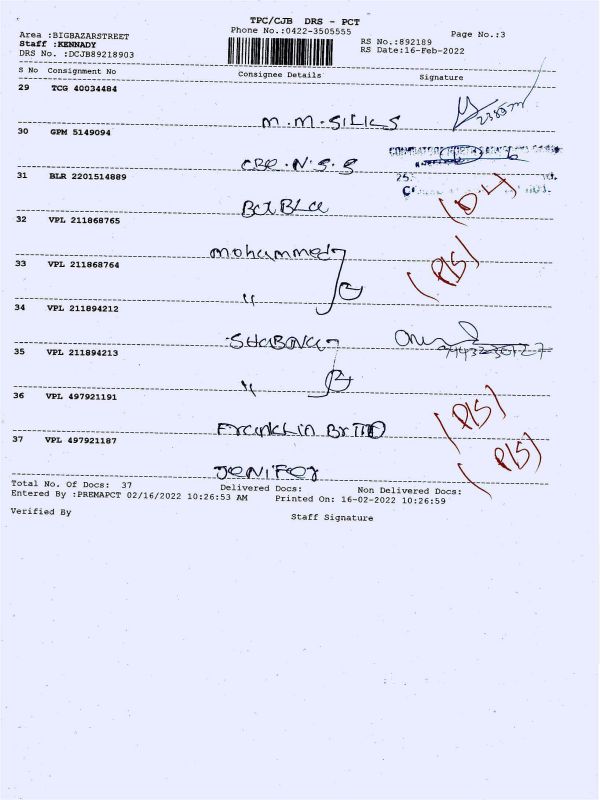 TPC/CJB DRS - PCT
Phone No.:0422-3505555
Page No.:3
Area :BIGBAZARSTREET
Staff :KENNADY
DRS No. :DCJB89218903
RS No.:892189
RS Date:16-Feb-2022
S No Consignment No Consignee Details Signature
29 TCG 40034484
M.M.SILKS
30 GPM 5149094
CBE.N.S.S
31 BLR 2201514889
32 VPL 211868765
mohammed
(P/S)
33 VPL 211868764
"
34 VPL 211894212
SHABANA
35 VPL 211894213
"
36 VPL 497921191
Franklin Britto
(P/S)
37 VPL 497921187
Jenifer
(P/S)
Total No. Of Docs: 37 Delivered Docs: Non Delivered Docs:
Entered By :PREMAPCT 02/16/2022 10:26:53 AM Printed On: 16-02-2022 10:26:59
Verified By Staff Signature